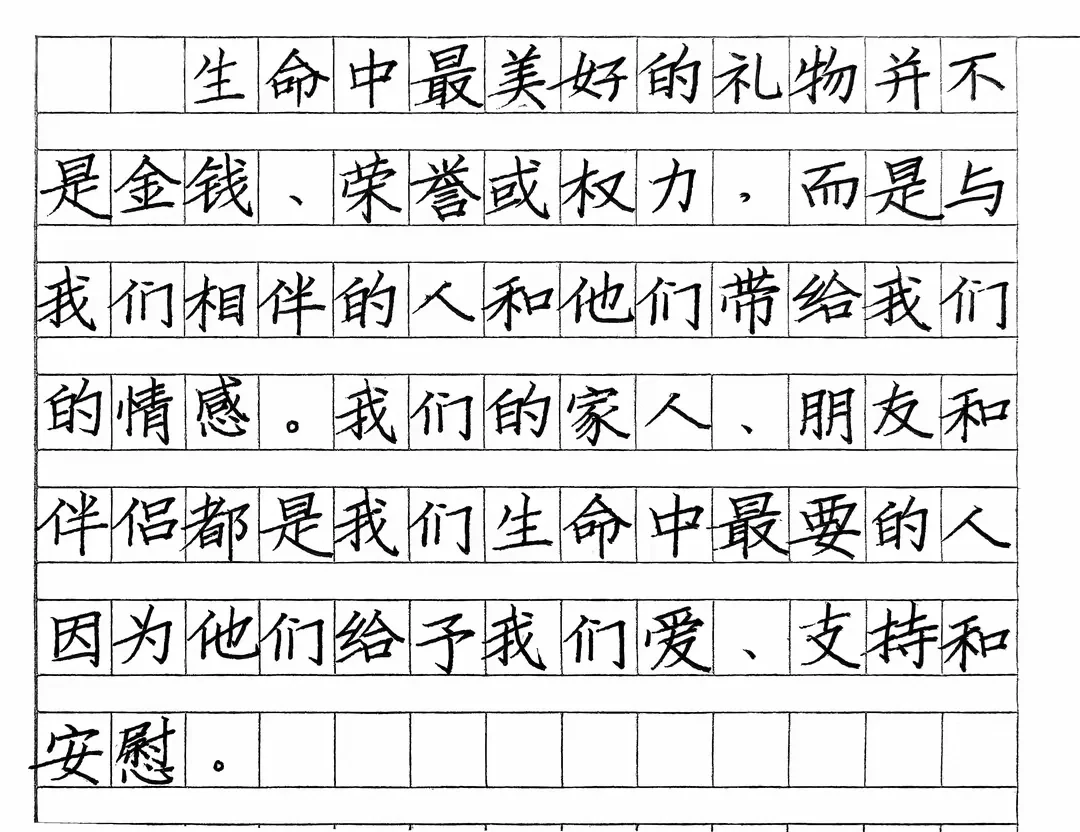 生命中最美好的礼物并不
是金钱、荣誉或权力，而是与
我们相伴的人和他们带给我们
的情感。我们的家人、朋友和
伴侣都是我们生命中最要的人
因为他们给予我们爱、支持和
安慰。